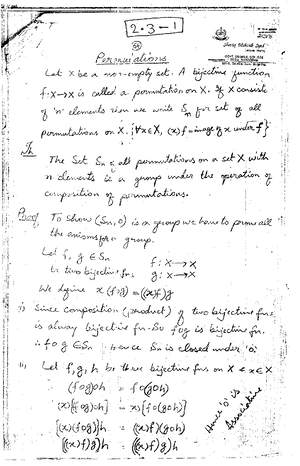 2-3-1
Permutations
Let X be a non-empty set. A bijective function
f: X→X is called a permutation on X. If X consists
of 'n' elements then we write Sn for set of all
permutations on X. {∀x∈X, (x)f = image of x under f}
Th
The Set Sn of all permutations on a set X with
n elements is a group under the operation of
composition of permutations.
Proof To show (Sn, o) is a group we have to prove all
the axioms for a group.
Let f, g ∈ Sn f: X→X
bijective fns g: X→X
We define x(fog) = ((x)f)g
i) Since composition (product) of two bijective fns
is always bijective fn. So fog is bijective fn.
∴ fog ∈ Sn Hence Sn is closed under 'o'
ii) Let f, g, h be three bijective fns on X & x∈X
(fog)oh = fo(goh)
(x)[(fog)oh] = x[fo(goh)]
[(x)(fog)]h = ((x)f)(goh)
((x)f)g)h = ((x)f)g)h
Hence 'o' is
Associative